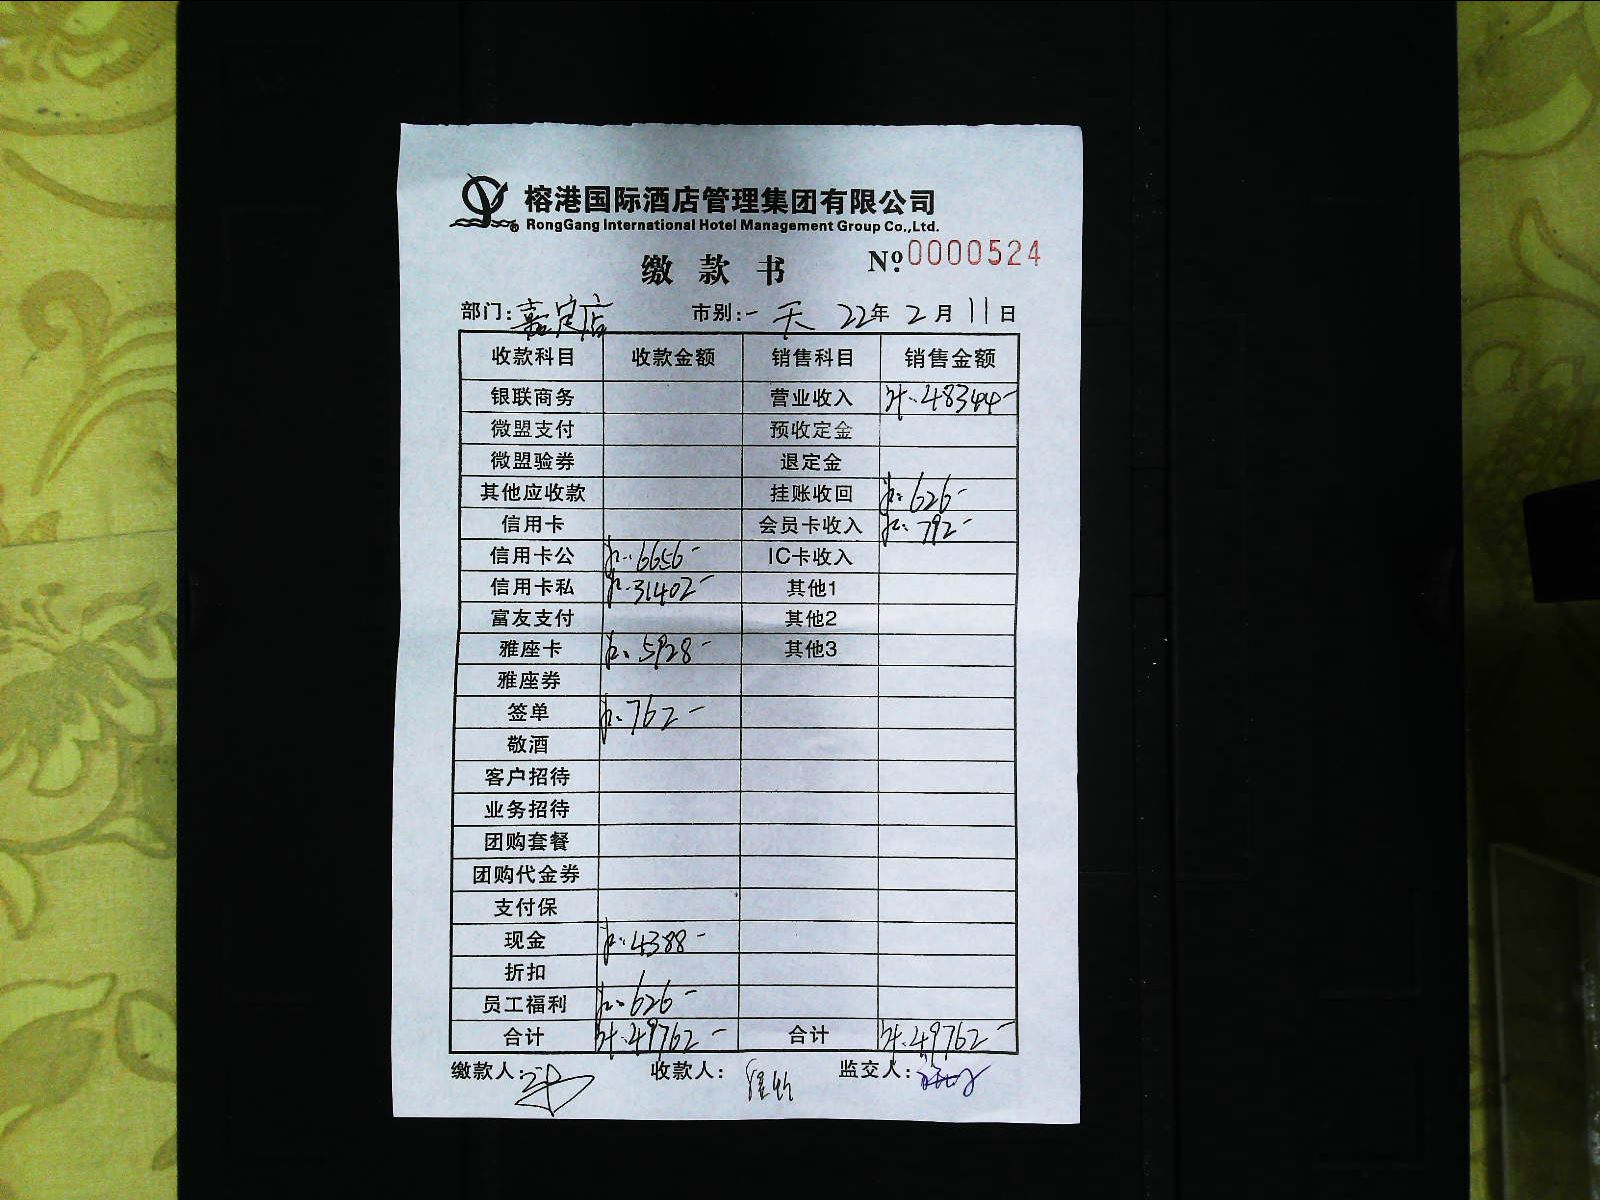 榕港国际酒店管理集团有限公司
RongGang International Hotel Management Group Co.,Ltd.
缴款书 Nº 0000524
部门:嘉定店 市别:一天 22年2月11日
收款科目 收款金额 销售科目 销售金额
银联商务 营业收入 48344-
微盟支付 预收定金
微盟验券 退定金
其他应收款 挂账收回 626-
信用卡 会员卡收入 792-
信用卡公 6656- IC卡收入
信用卡私 31402- 其他1
富友支付 其他2
雅座卡 5928- 其他3
雅座券
签单 762-
敬酒
客户招待
业务招待
团购套餐
团购代金券
支付保
现金 4388-
折扣
员工福利 626-
合计 49762- 合计 49762-
缴款人: 收款人: 监交人: